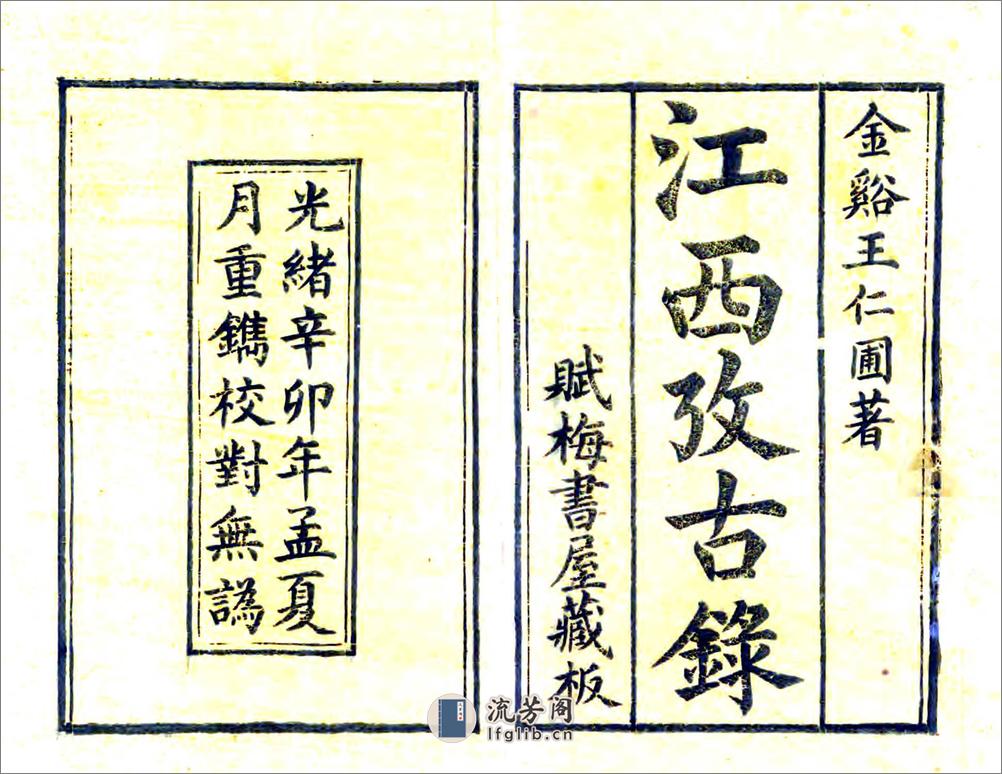 金谿王仁圃著
江西攷古錄
賦梅書屋藏板
光緒辛卯年孟夏
月重鐫校對無譌
流芳阁
lfglib.cn